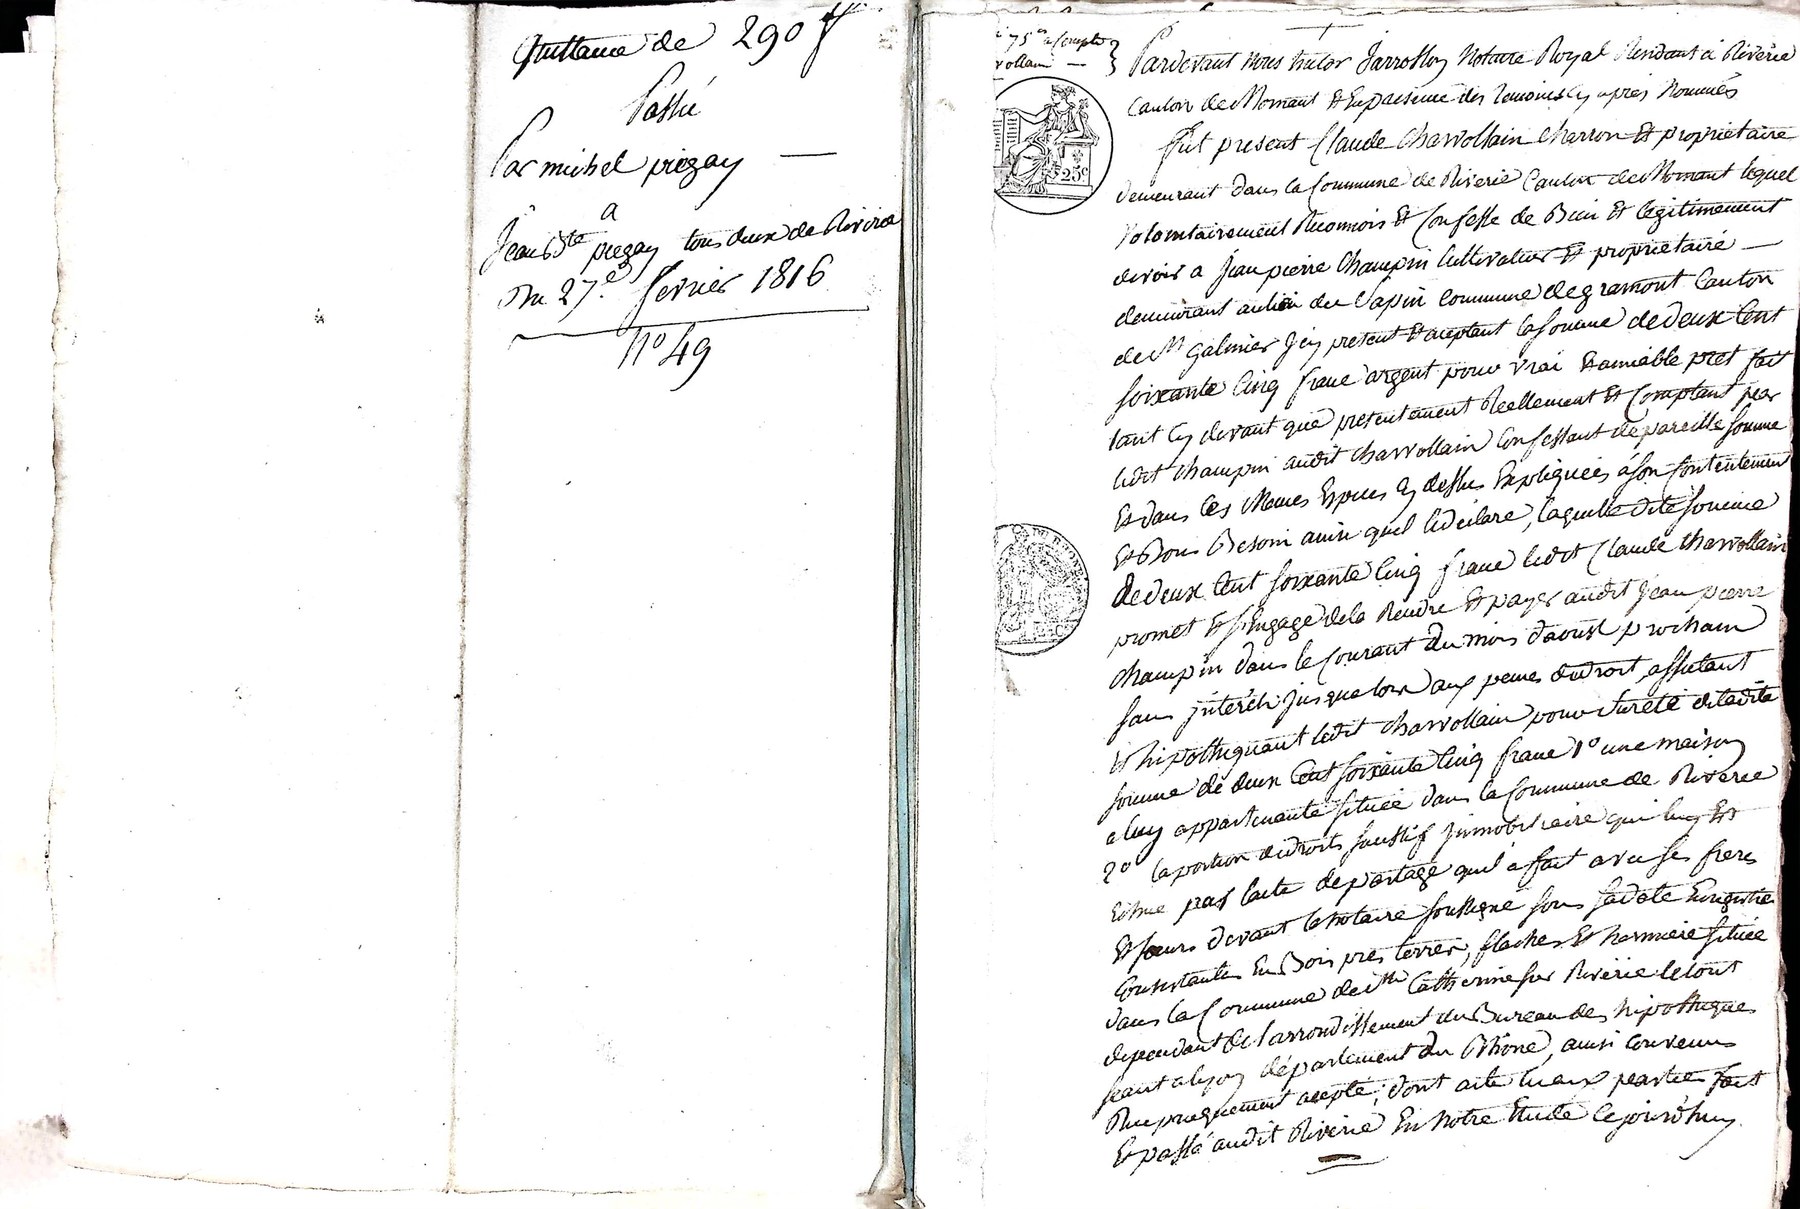 Quittance de 290 f
Passé
Par michel piegay —
a
Jean Bte piegay tous deux de Riverie
Du 27.e fevrier 1816
no 49
75 c a Compte
vollain —
Pardevant nous hector Jarrosson Notaire Royal Residant a Riverie
Canton de Mornant Et En presence des temoins Cy après Nommés
fut present Claude Charvollain Charron Et propriétaire
demeurant dans la Commune de Riverie Canton de Mornant lequel
volontairement Reconnois Et Confesse de Bien Et legitimement
devoir a Jean pierre Champin Cultivateur Et propriétaire —
demeurant au lieu du Sapin Commune de gramont Canton
de St galmier Jcy present Et aceptant la somme de deux Cent
soixante Cinq franc argent pour vrai Et amiable pret fait
tant Cy devant que presentement Reellement Et Comptant par
ledit Champin audit Charvollain Confessant de pareille somme
Et dans les Memes Especes Cy dessus Expliquées a son Contentement
Et Bons Besoin ainsi quil le declare, laquelle dite somme
de deux Cent soixante Cinq franc ledit Claude Charvollain
promet Et s'Engage de la Rendre Et payer audit Jean pierre
Champin dans le Courant du mois d'aoust prochain
sans jnterêt jusqualors aux peines du droit, affectant
Et hipothiquant ledit Charvollain pour sureté de ladite
somme de deux Cent soixante Cinq franc 1o une maison
a luy appartenante située dans la Commune de Riverie
2o la portion de droits jmmobiliaire qui luy Est
Echue par l'acte de partage quil a fait avec ses freres
Et sœurs devant le Notaire soussigné sous sa date Enregistré
Consistante En Bois pres terres, flaches Et hermiere située
dans la Commune de Ste Catherine sur Riverie le tout
dependant de l'arrondissement du Bureau des hipotheques
seant a lyon département du Rhône, ainsi Convenu
Reciproquement accepté, dont acte lu aux parties fait
Et passé audit Riverie En Notre Etude Cejourd'huy
25 c
DU RHONE